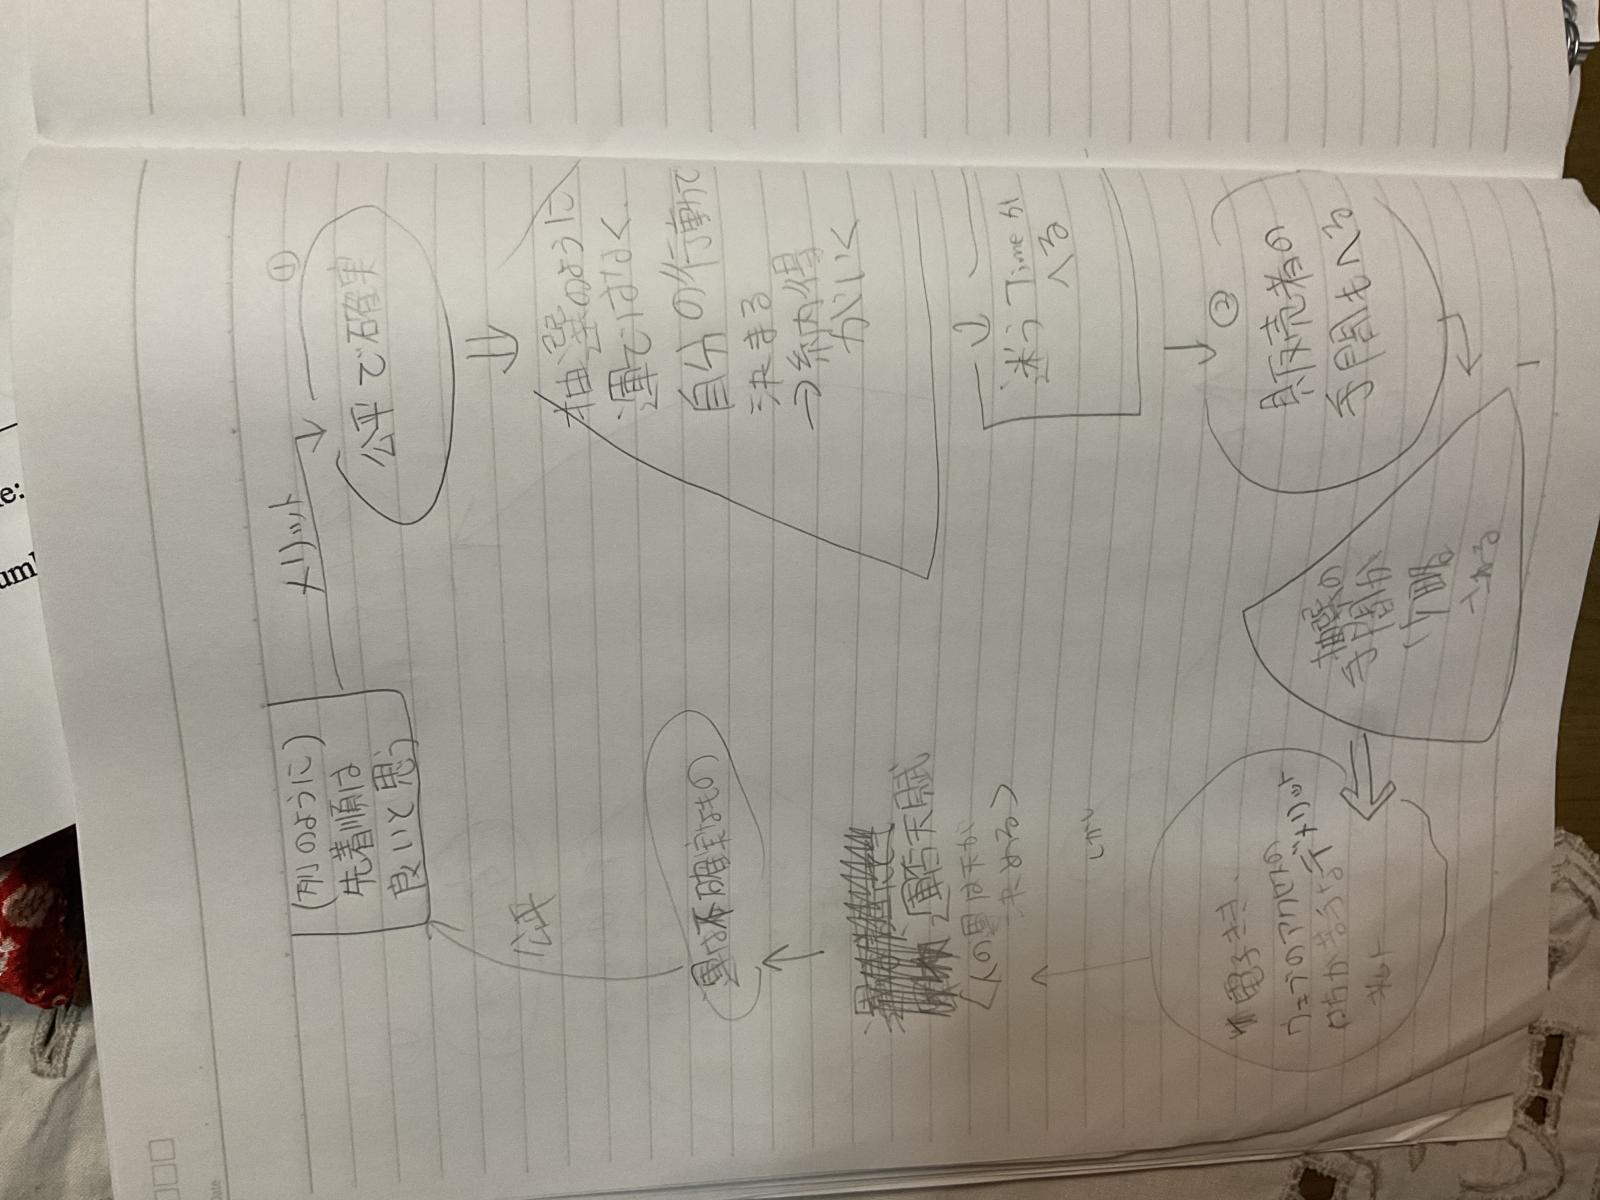 (列のように)
先着順は
良いと思う
メリット
①
公平で確実
抽選のように
運ではなく、
自分の行動で
決まる
→納得
がいく
迷うTimeが
へる
②
販売者の
手間もへる
抽選の
手間が
省略
される
電子だ
ウェブのアクセスの
デメリット
ネット
しかし
運否天賦
(人の運は天が
決める)
運は不確実なもの
公平
e:
um
Date